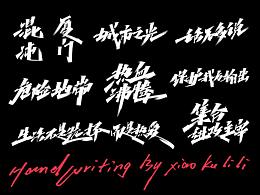 混沌 厦门 城市之光 话不多说
危险地带 热血沸腾 保护我方输出
生活不是选择 而是热爱 集合
Hand writing By xiao ku li li